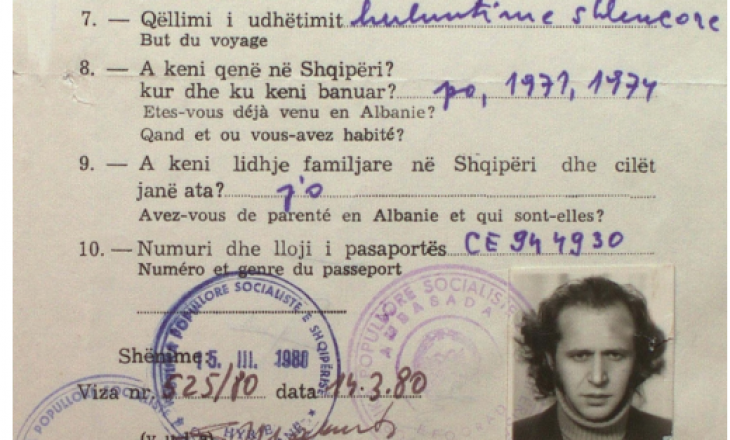 7. — Qëllimi i udhëtimit hulumtime shkencore
But du voyage
8. — A keni qenë në Shqipëri?
kur dhe ku keni banuar? po, 1971, 1974
Etes-vous déjà venu en Albanie?
Qand et ou vous-avez habité?
9. — A keni lidhje familjare në Shqipëri dhe cilët
janë ata? jo
Avez-vous de parenté en Albanie et qui sont-elles?
10. — Numuri dhe lloji i pasaportës CE 944930
Numéro et genre du passeport
POPULLORE SOCIALISTE E SHQIPËRISË
POPULLORE SOCIALISTE
AMBASADA
Shënime:
15. III. 1980
Viza nr. 525/80 data: 14.3.80
POPULLORE SOCIALISTE
HYRJE
BEOGRAD